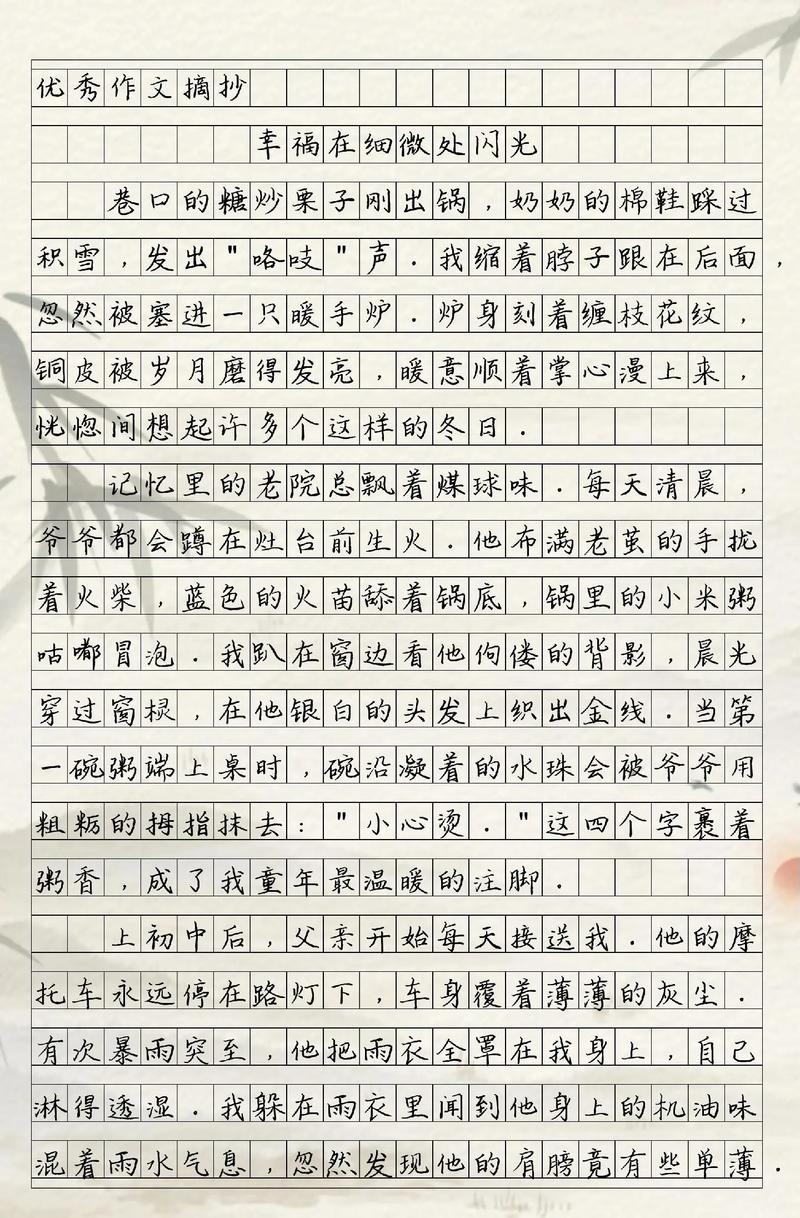 优秀作文摘抄
幸福在细微处闪光
巷口的糖炒栗子刚出锅,奶奶的棉鞋踩过
积雪,发出"咯吱"声.我缩着脖子跟在后面,
忽然被塞进一只暖手炉.炉身刻着缠枝花纹,
铜皮被岁月磨得发亮,暖意顺着掌心漫上来,
恍惚间想起许多个这样的冬日.
记忆里的老院总飘着煤球味.每天清晨,
爷爷都会蹲在灶台前生火.他布满老茧的手拢
着火柴,蓝色的火苗舔着锅底,锅里的小米粥
咕嘟冒泡.我趴在窗边看他佝偻的背影,晨光
穿过窗棂,在他银白的头发上织出金线.当第
一碗粥端上桌时,碗沿凝着的水珠会被爷爷用
粗粝的拇指抹去:"小心烫."这四个字裹着
粥香,成了我童年最温暖的注脚.
上初中后,父亲开始每天接送我.他的摩
托车永远停在路灯下,车身覆着薄薄的灰尘.
有次暴雨突至,他把雨衣全罩在我身上,自己
淋得透湿.我躲在雨衣里闻到他身上的机油味
混着雨水气息,忽然发现他的肩膀竟有些单薄.